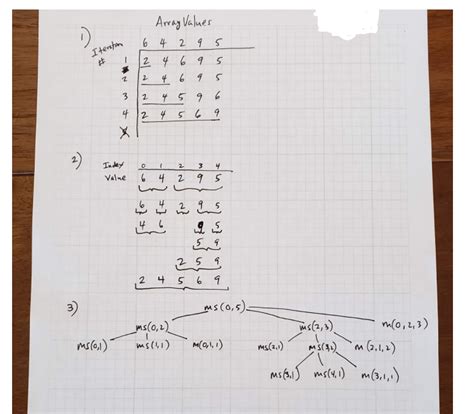 Array Values
1)
Iteration # 6 4 2 9 5
1 2 4 6 9 5
2 2 4 6 9 5
3 2 4 5 9 6
4 2 4 5 6 9
2)
Index 0 1 2 3 4
Value 6 4 2 9 5
6 4 2 9 5
4 6 9 5
5 9
2 5 9
2 4 5 6 9
3)
ms(0,5)
ms(0,2) ms(2,3) m(0,2,3)
ms(0,1) ms(1,1) m(0,1,1) ms(2,1) ms(3,2) m(2,1,2)
ms(3,1) ms(4,1) m(3,1,1)